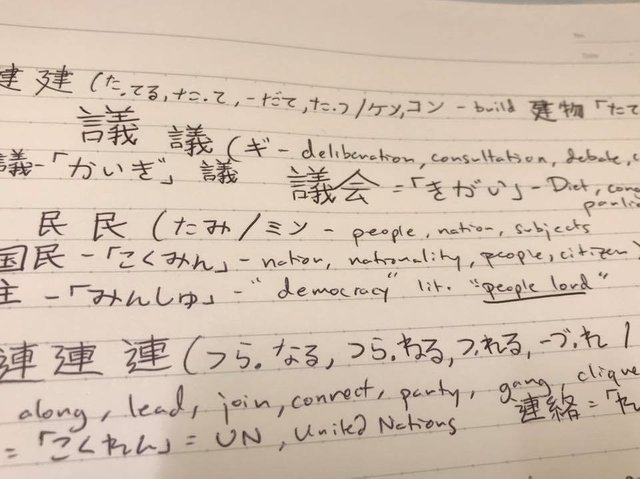 建 建 (た.てる, た.て, -だて, た.つ / ケン, コン - build 建物「たて
議 議 (ギ - deliberation, consultation, debate,
議-「かいぎ」 議 議会 =「きがい」- Diet,
民 民 (たみ / ミン - people, nation, subjects
国民 -「こくみん」- nation, nationality, people, citizen)
主 -「みんしゅ」- "democracy" lit. "people lord"
連 連 連 (つら.なる, つら.ねる, つ.れる, -づ.れ /
along, lead, join, connect, party, gang, clique
=「こくれん」= UN, United Nations 連絡 =「れ